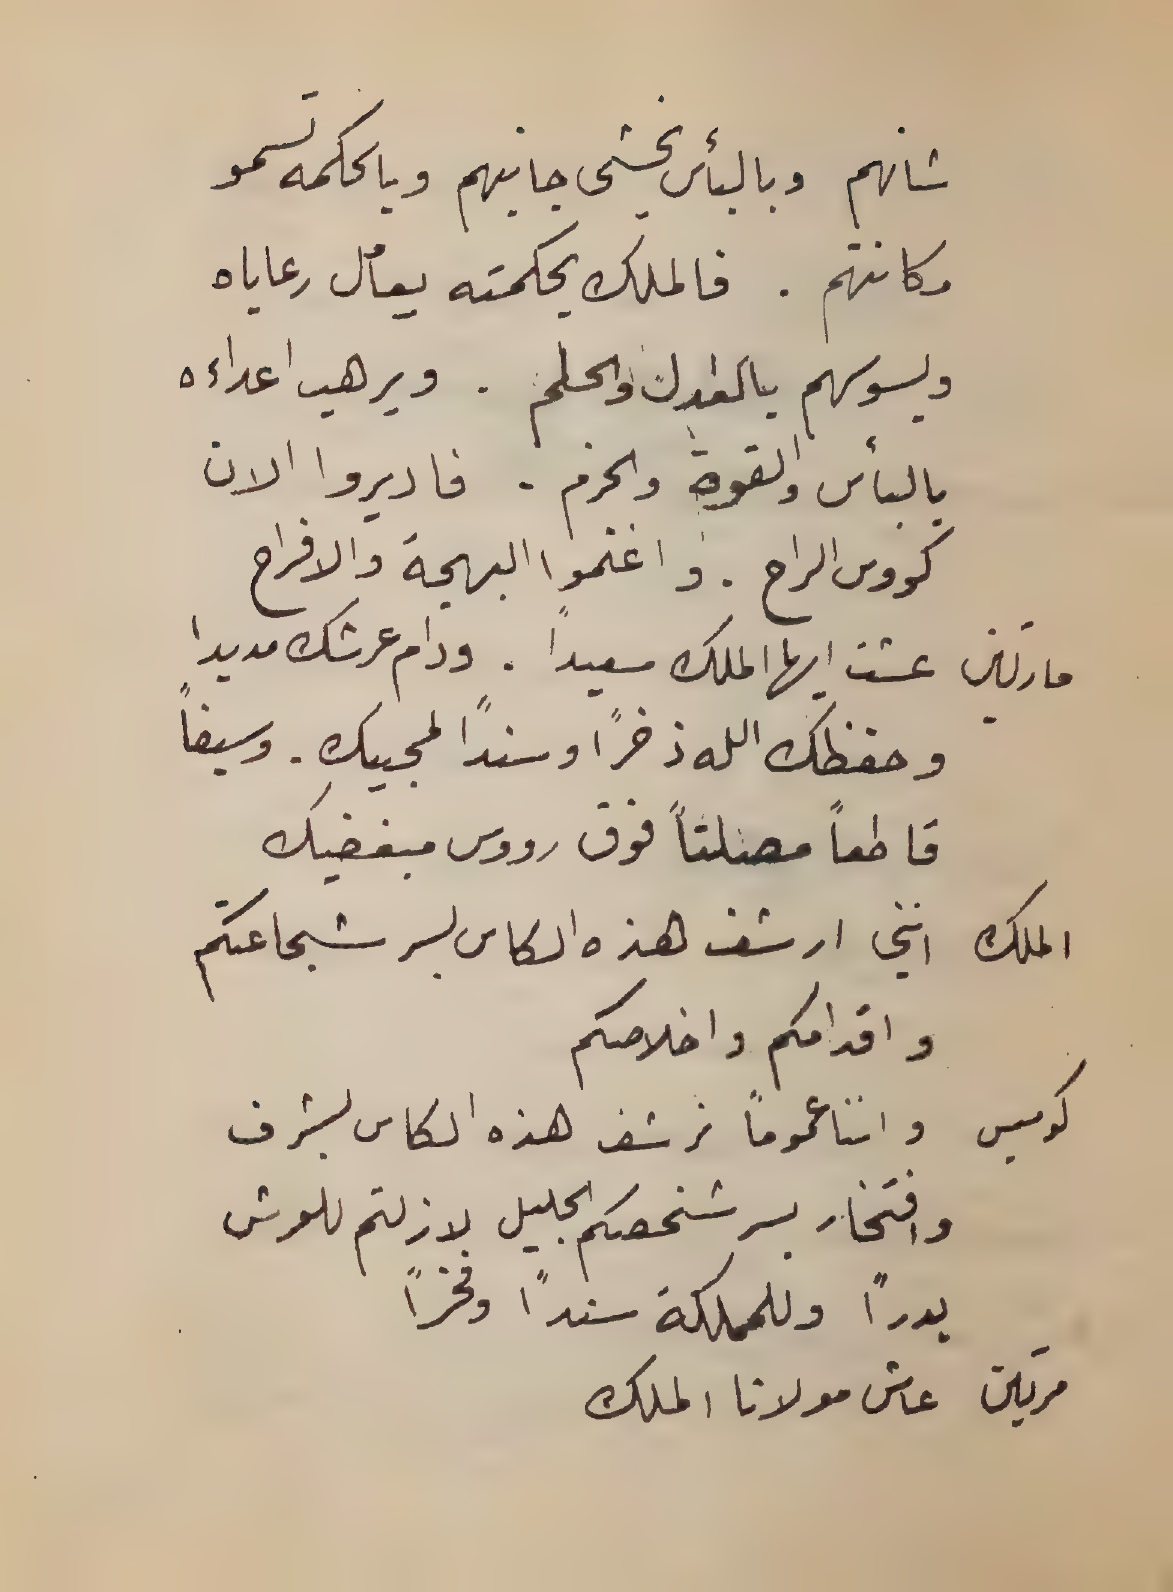 شانهم وبالبأس يخشى جانبهم وبالحكمه تسمو
مكانتهم . فالملك بحكمته رعاياه
ويسوسهم بالعدل والحلم . ويرهب اعداءه
بالبأس والقوة والحزم . فاديروا الان
كووس الراح . واغنموا البهجة والافراح
مارتين عشت ايها الملك سعيداً . ودام عرشك مديدا
وحفظك الله ذخراً وسنداً لمحبيك . وسيفاً
قاطعاً مصلتاً فوق رووس مبغضيك
الملك انني ارشف هذه الكاس بسر شجاعتكم
واقدامكم واخلاصكم
كوميس واننا عموماً نرشف هذه الكاس بشرف
وافتخار بسر شخصكم الجليل لازلتم للعرش
بدراً وللمملكة سنداً وفخراً
مرتين عاش مولانا الملك